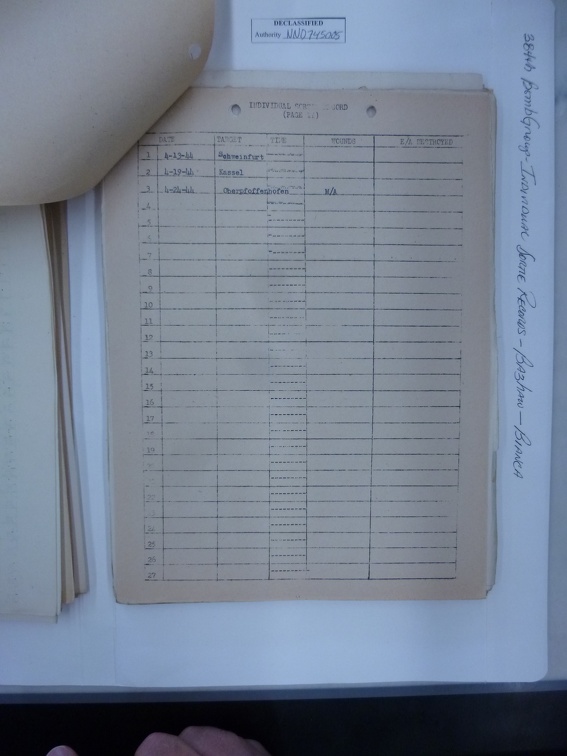 DECLASSIFIED
Authority NND 745005
384th Bomb Group - Individual Sortie Records -
INDIVIDUAL
(PAGE
DATE TARGET TIME WOUNDS E/A DESTROYED
1 4-13-44 Schweinfurt
2 4-19-44 Kassel
3 4-24-44 Oberpfaffenhofen M/A
4
5
6
7
8
9
10
11
12
13
14
15
16
17
18
19
20
21
22
23
24
25
26
27